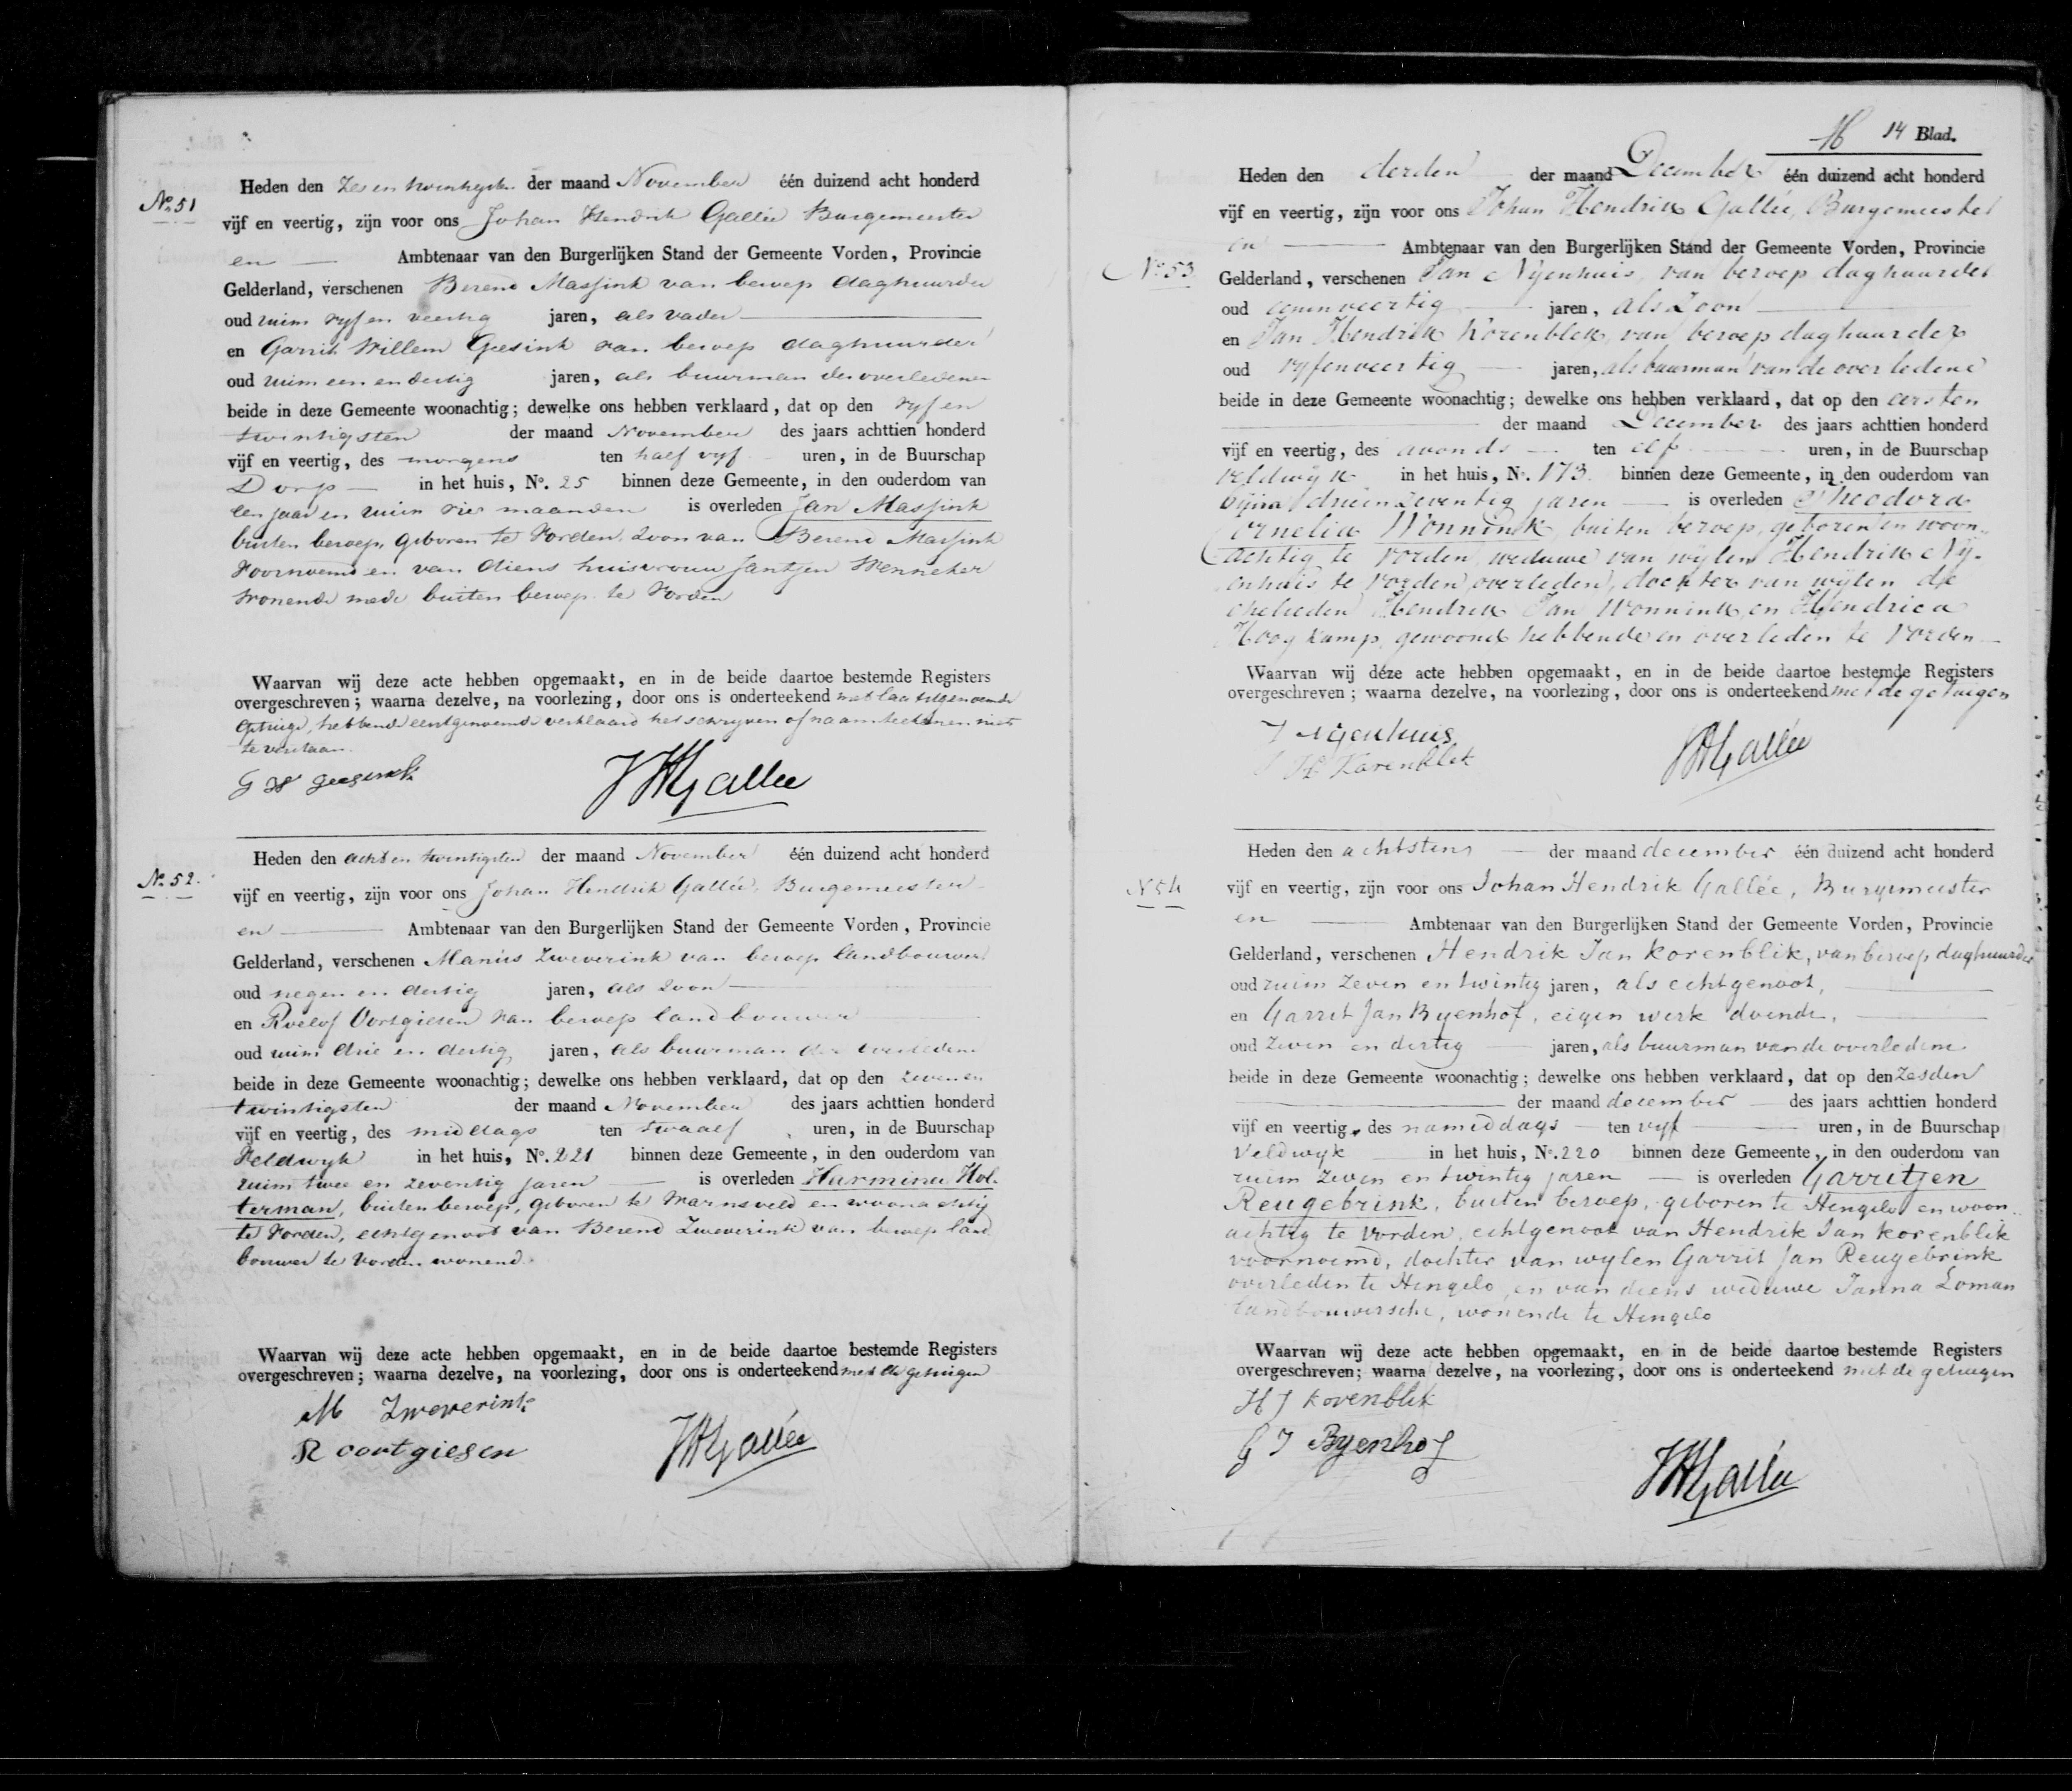 No. 51
Heden den zes en twintigsten der maand November één duizend acht honderd
vijf en veertig, zijn voor ons Johan Hendrik Gallée Burgemeester
en Ambtenaar van den Burgerlijken Stand der Gemeente Vorden, Provincie
Gelderland, verschenen Berend Massink van beroep daghuurder
oud ruim vyf en veertig jaren, als vader
en Garrit Willem Geesink van beroep daghuurder
oud ruim een en dertig jaren, als buurman des overledenen
beide in deze Gemeente woonachtig; dewelke ons hebben verklaard, dat op den vyf en
twintigsten der maand November des jaars achttien honderd
vijf en veertig, des morgens ten half vyf uren, in de Buurschap
Dorp in het huis, No. 25 binnen deze Gemeente, in den ouderdom van
een jaar en ruim vier maanden is overleden Jan Massink
buiten beroep, geboren te Vorden, zoon van Berend Massink
voornoemd en van diens huisvrouw Jantjen Wenneker
wonende mede buiten beroep te Vorden
Waarvan wij deze acte hebben opgemaakt, en in de beide daartoe bestemde Registers
overgeschreven; waarna dezelve, na voorlezing, door ons is onderteekend met laatstgenoemde
getuige, hebbende eerstgenoemde verklaard het schryven of naamteekenen niet
te verstaan.
G W geesink
JHGallée
No. 52.
Heden den acht en twintigsten der maand November één duizend acht honderd
vijf en veertig, zijn voor ons Johan Hendrik Gallée, Burgemeester
en Ambtenaar van den Burgerlijken Stand der Gemeente Vorden, Provincie
Gelderland, verschenen Manus Zweverink van beroep landbouwer
oud negen en dertig jaren, als zoon
en Roelof Oortgiesen van beroep landbouwer
oud ruim drie en dertig jaren, als buurman der overledene
beide in deze Gemeente woonachtig; dewelke ons hebben verklaard, dat op den zeven en
twintigsten der maand November des jaars achttien honderd
vijf en veertig, des middags ten twaalf uren, in de Buurschap
Veldwyk in het huis, No. 221 binnen deze Gemeente, in den ouderdom van
ruim twee en zeventig jaren is overleden Harmina Hol-
terman, buiten beroep, geboren te Warnsveld en woonachtig
te Vorden, echtgenoot van Berend Zweverink van beroep land
bouwer te Vorden wonend.
Waarvan wij deze acte hebben opgemaakt, en in de beide daartoe bestemde Registers
overgeschreven; waarna dezelve, na voorlezing, door ons is onderteekend met de getuigen
M Zweverink
R oortgiesen
JHGallée
14 Blad.
Heden den derden der maand December één duizend acht honderd
vijf en veertig, zijn voor ons Johan Hendrik Gallée, Burgemeester
en Ambtenaar van den Burgerlijken Stand der Gemeente Vorden, Provincie
No. 53
Gelderland, verschenen Jan Nijenhuis, van beroep daghuurder
oud eenenveertig jaren, als Zoon
en Jan Hendrik Korenblek, van beroep daghuurder
oud vyfenveertig jaren, als buurman van de overledene
beide in deze Gemeente woonachtig; dewelke ons hebben verklaard, dat op den eersten
der maand December des jaars achttien honderd
vijf en veertig, des avonds ten elf uren, in de Buurschap
veldwijk in het huis, No. 173 binnen deze Gemeente, in den ouderdom van
bijna drieenzeventig jaren is overleden Theodora
Cornelia Wonnink, buiten beroep, geboren en woon-
achtig te Vorden, weduwe van wijlen Hendrik Nij-
enhuis te Vorden overleden, dochter van wijlen de
ehelieden Hendrik Jan Wonnink, en Hendrica
Hoogkamp, gewoond hebbende en overleden te Vorden
Waarvan wij deze acte hebben opgemaakt, en in de beide daartoe bestemde Registers
overgeschreven; waarna dezelve, na voorlezing, door ons is onderteekend met de getuigen
J Nijenhuis
J H Korenblek
JHGallée
No 54
Heden den achtsten der maand december één duizend acht honderd
vijf en veertig, zijn voor ons Johan Hendrik Gallée, Burgemeester
en Ambtenaar van den Burgerlijken Stand der Gemeente Vorden, Provincie
Gelderland, verschenen Hendrik Jan Korenblik, van beroep daghuurder
oud ruim zeven en twintig jaren, als echtgenoot,
en Garrit Jan Byenhof, eigen werk doende,
oud zeven en dertig jaren, als buurman van de overledene
beide in deze Gemeente woonachtig; dewelke ons hebben verklaard, dat op den zesden
der maand december des jaars achttien honderd
vijf en veertig, des namiddags ten vyf uren, in de Buurschap
Veldwyk in het huis, No. 220 binnen deze Gemeente, in den ouderdom van
ruim zeven en twintig jaren is overleden Garritjen
Reugebrink, buiten beroep, geboren te Hengelo en woon-
achtig te Vorden, echtgenoot van Hendrik Jan Korenblik
voornoemd, dochter van wylen Garrit Jan Reugebrink
overleden te Hengelo, en van diens weduwe Janna Loman
landbouwersche, wonende te Hengelo
Waarvan wij deze acte hebben opgemaakt, en in de beide daartoe bestemde Registers
overgeschreven; waarna dezelve, na voorlezing, door ons is onderteekend met de getuigen
H J Korenblik
G J Byenhof
JHGallée